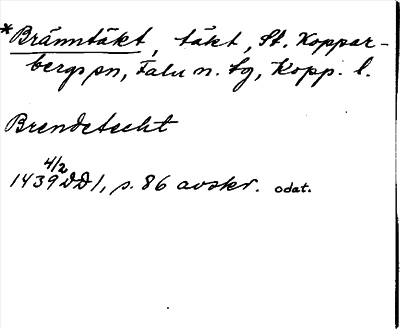 *Bränntäkt, täkt, St. Koppar-
bergs sn, Falu n. tg, Kopp. l.
Brendetecht
1439 4/2 DD 1, s. 86 avskr. odat.